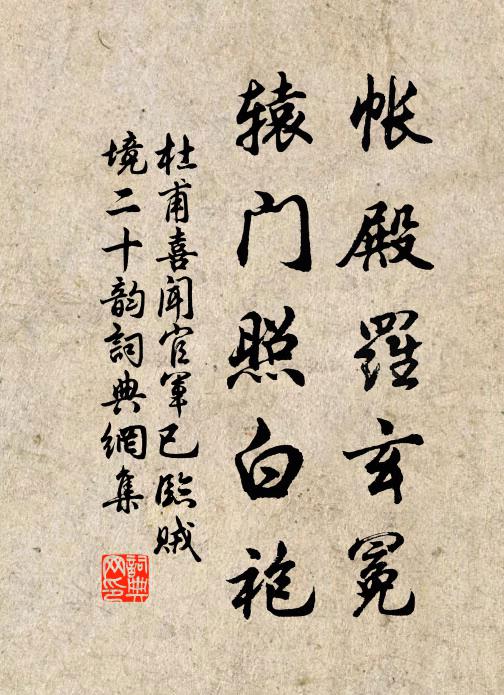 帐殿羅玄冕
辕门照白袍
杜甫喜闻官军已臨贼
境二十韵詞典網集
詞典
网印